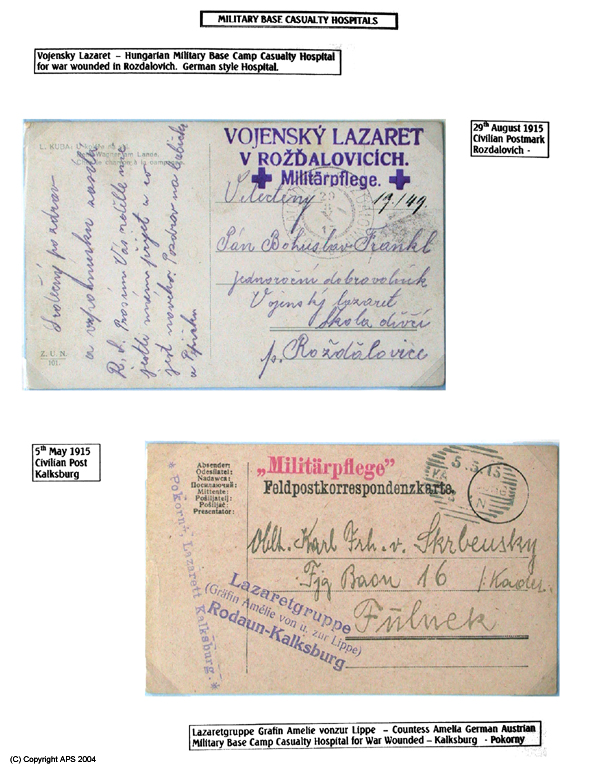 MILITARY BASE CASUALTY HOSPITALS
Vojensky Lazaret – Hungarian Military Base Camp Casualty Hospital
for war wounded in Rozdalovich. German style Hospital.
29th August 1915
Civilian Postmark
Rozdalovich -
L. KUBA:
VOJENSKÝ LAZARET
V ROŽĎALOVICÍCH.
Militärpflege.
Srdečný pozdrav
a vzpomínku zasílá
Z. U. N.
101.
19/149
Pán Bohuslav Frankl
jednoroční dobrovolník
Vojenský lazaret
škola dívčí
p. Rožďálovice
5th May 1915
Civilian Post
Kalksburg
Absender:
Odesílatel:
Nadawca:
Посилаючий:
Mittente:
Pošiljatelj:
Pošiljač:
Presentator:
„Militärpflege”
Feldpostkorrespondenzkarte.
5.5.15
Oblt. Karl Frh. v. Skrbensky
Fjg Baon 16 /: Kader:
Fulnek
* Pokorny, Lazarett Kalksburg. *
Lazaretgruppe
(Gräfin Amélie von u. zur Lippe)
Rodaun-Kalksburg
Lazaretgruppe Grafin Amelie vonzur Lippe – Countess Amelia German Austrian
Military Base Camp Casualty Hospital for War Wounded – Kalksburg - Pokorny
(C) Copyright APS 2004